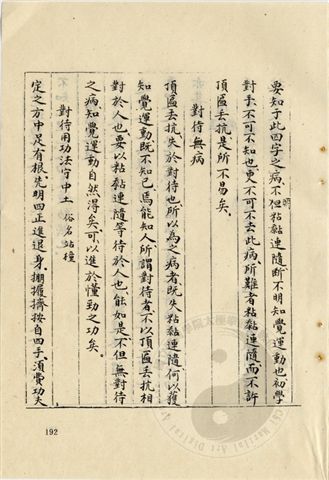 要知于此四字之病不但粘黏連隨斷不明知覺運動也初學
明
對手不可不知也更不可不去此病所難者粘黏連隨而不許
頂匾丢抗是所不易矣
對待無病
頂匾丢抗失於對待也所以為之病者既失粘黏連隨何以獲
知覺運動既不知己焉能知人所謂對待者不以頂匾丢抗相
對於人也要以粘黏連隨等待於人也能如是不但無對待
之病知覺運動自然得矣可以進於懂勁之功矣
對待用功法守中土 俗名站樁
定之方中足有根先明四正進退身掤擴擠按自四手須費功夫
192